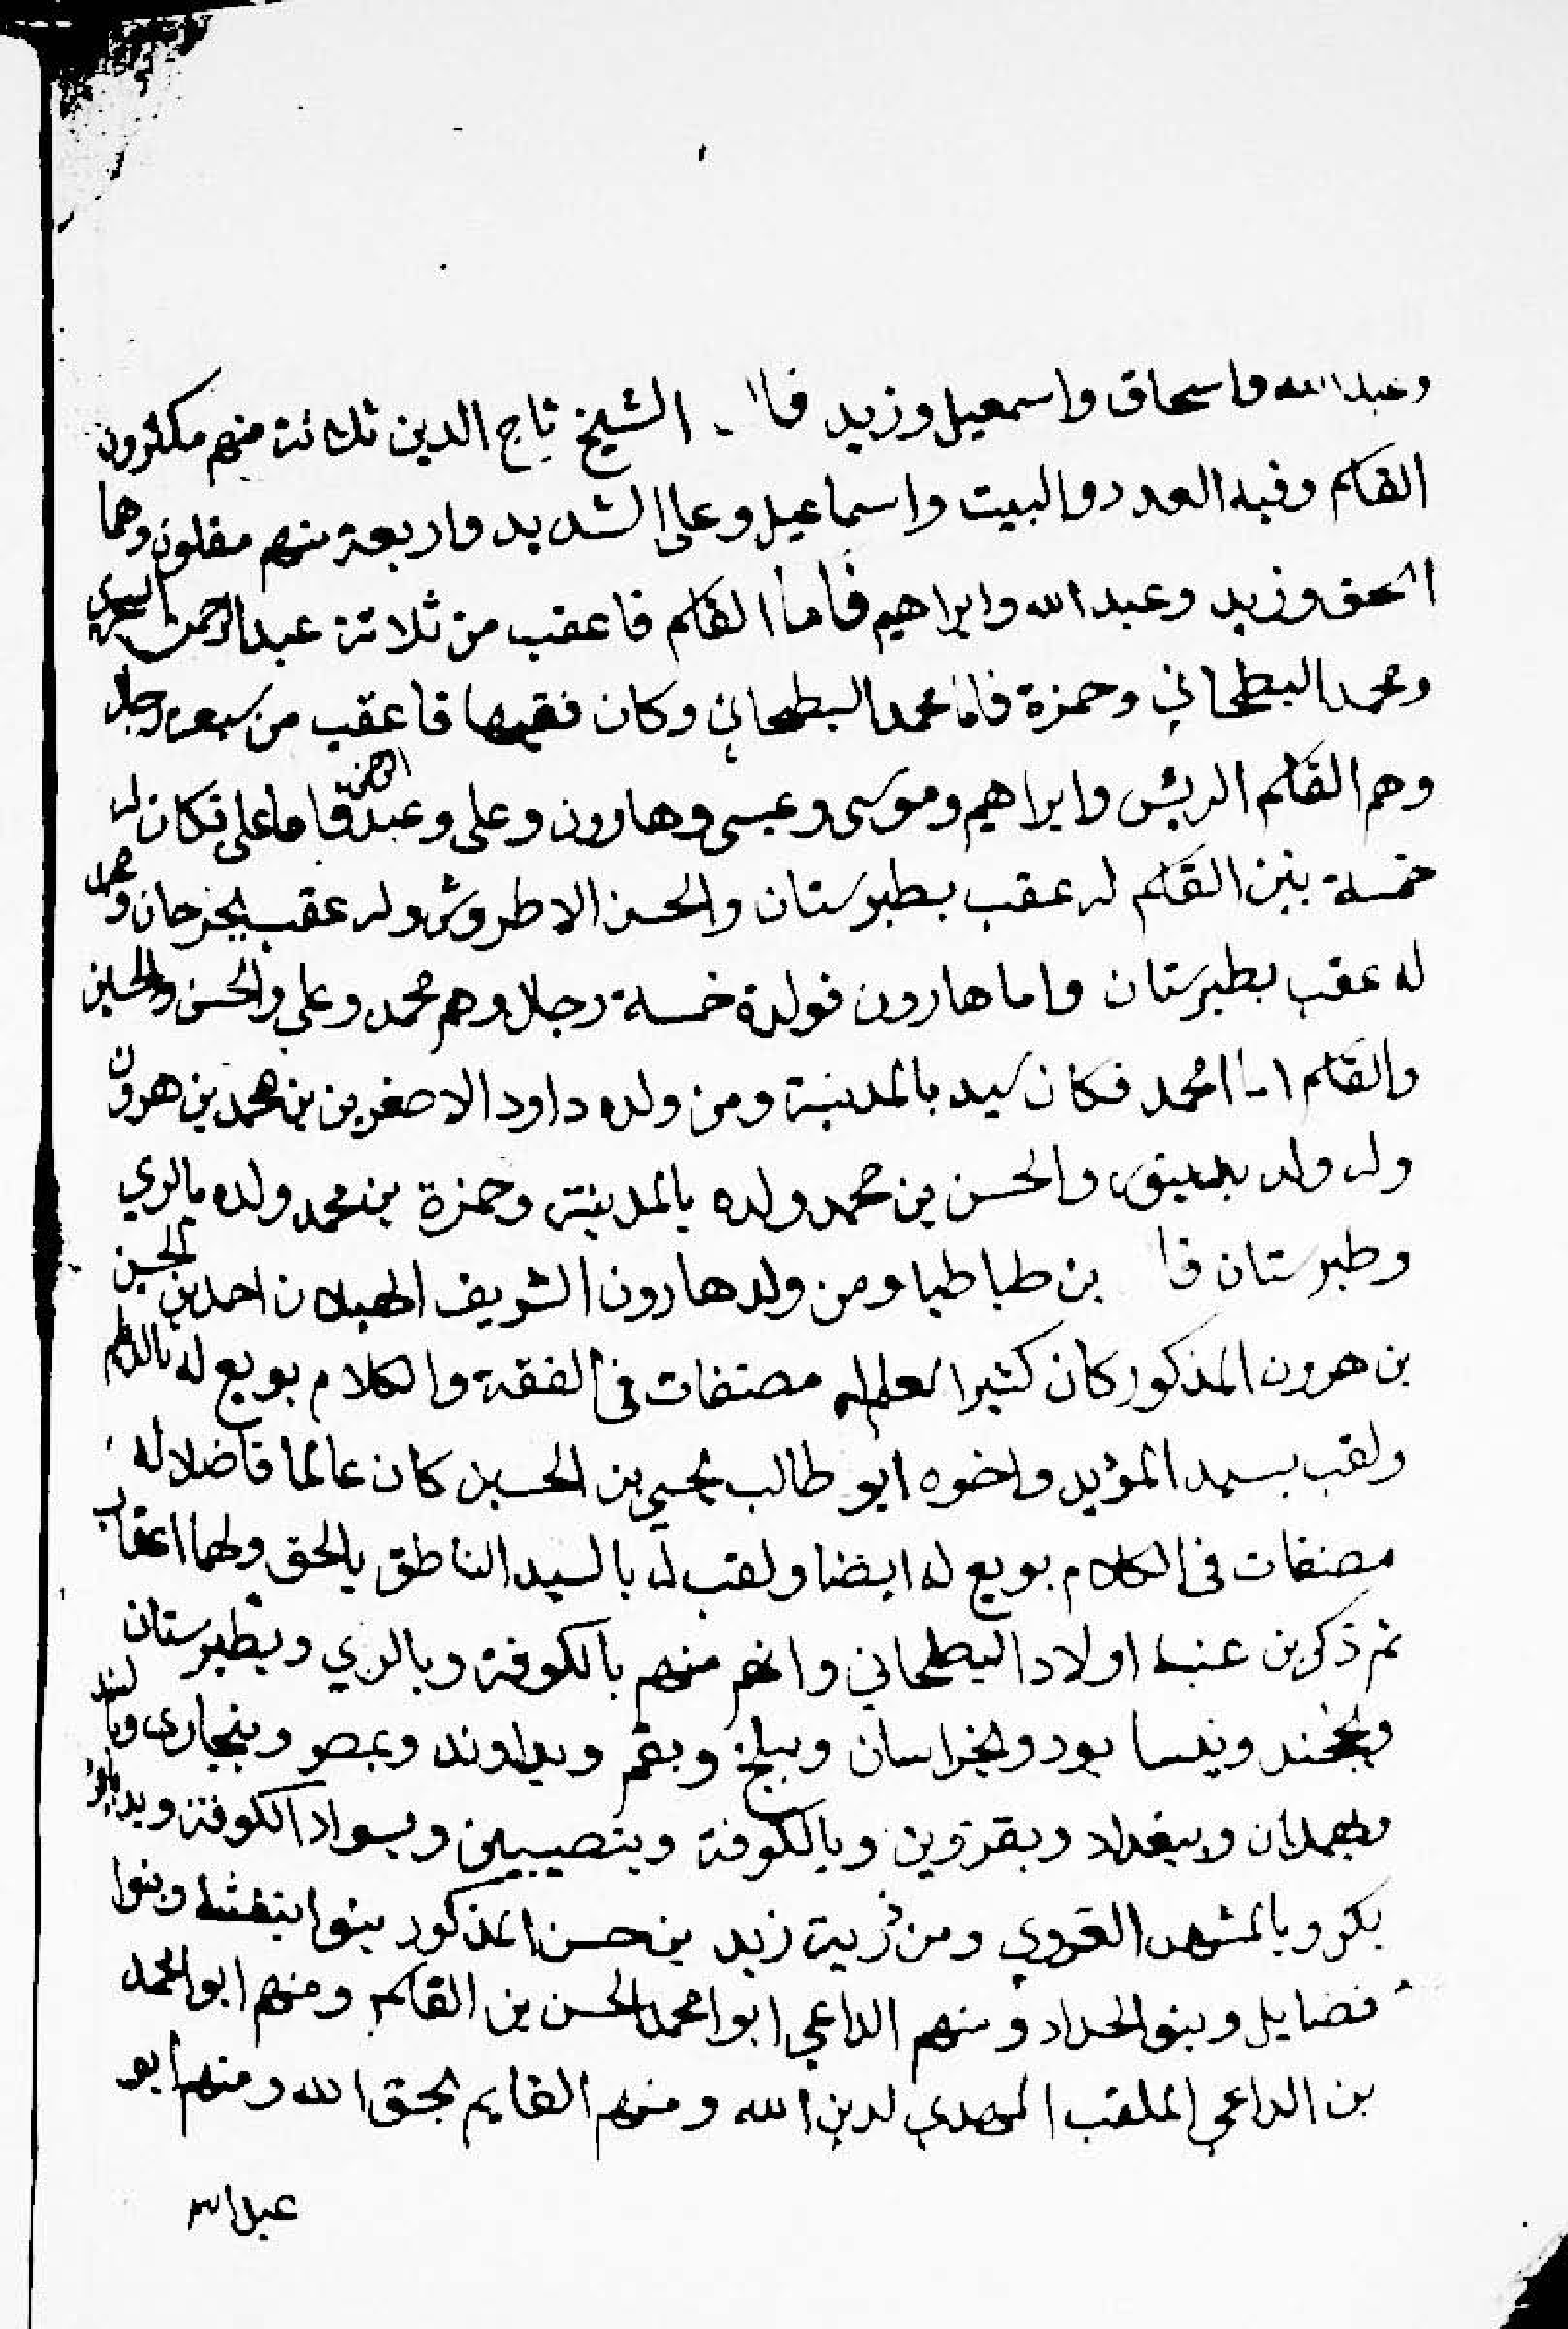 وعبد الله واسحاق واسمعيل وزيد قال الشيخ تاج الدين ثلاثة منهم مكثرون
القاسم وفيه العدد والبيت واسماعيل وعلى الشديد واربعة منهم مقلون وهما
اسحق وزيد وعبد الله وابراهيم فاما القاسم فاعقب من ثلاثة عبد الرحمن الشجري
ومحمد البطحاني وحمزة فاما محمد البطحاني وكان فقيها فاعقب من سبعه رجلا
وهم القاسم الريش وابراهيم وموسى وعيسى وهارون وعلى وعبد الرحمن فاما على فكان له
خمسة بنين القاسم له عقب بطبرستان والحسن الاطروش وله عقب بجرجان ومحمد
له عقب بطبرستان واما هارون فولده خمسة رجلا وهم محمد وعلي والحسن والحسين
والقاسم اما محمد فكان سيد بالمدينة ومن ولده داود الاصغر بن بن محمد بن هرون
وله ولد والحسن بن محمد ولده بالمدينة وحمزة بن محمد ولده بالري
وطبرستان قا بن طباطبا ومن ولد هارون الشريف احمد بن الحسين
بن هرون المذكور كان كثير العلم له مصنفات في الفقة والكلام بويع له بالديلم
ولقب بسيد المؤيد واخوه ابو طالب يحيى بن الحسين كان عالما فاضلا له
مصنفات في الكلام بويع له ايضا ولقب له بالسيد الناطق بالحق ولهما اعقاب
ثم ذكر بن عنبه اولاد البطحاني وانهم منهم بالكوفة وبالري وبطبرستان
وبخجند وبنيسابود وبخراسان وببلخ وبقم وبمصر وببخارى
وبهمدان وببغداد وبقزوين وبالكوفة وبنصيبين وبسواد الكوفة وبديار
بكر وبالمشهد الغروي ومن ذرية زيد بن حسن المذكور بنوا وبنوا
فضايل وبنو الحداد ومنهم الداعي ابوا محمد الحسن بن القاسم ومنهم ابو محمد
بن الداعي الملقب المهدي لدين الله ومنهم القايم بحق الله ومنهم ابو
عبد الله